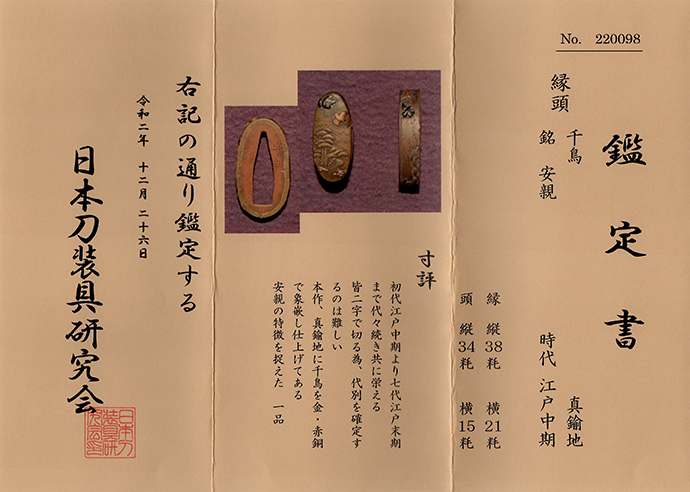 No. 220098
鑑定書
縁頭
千鳥
銘 安親
真鍮地
時代 江戸中期
縁 縦38粍 横21粍
頭 縦34粍 横15粍
寸評
初代江戸中期より七代江戸末期
まで代々続き共に栄える
皆二字で切る為、代別を確定す
るのは難しい
本作、真鍮地に千鳥を金・赤銅
で象嵌し仕上げてある
安親の特徴を捉えた 一品
右記の通り鑑定する
令和二年 十二月 二十六日
日本刀装具研究会
日本刀
装具研
究会印